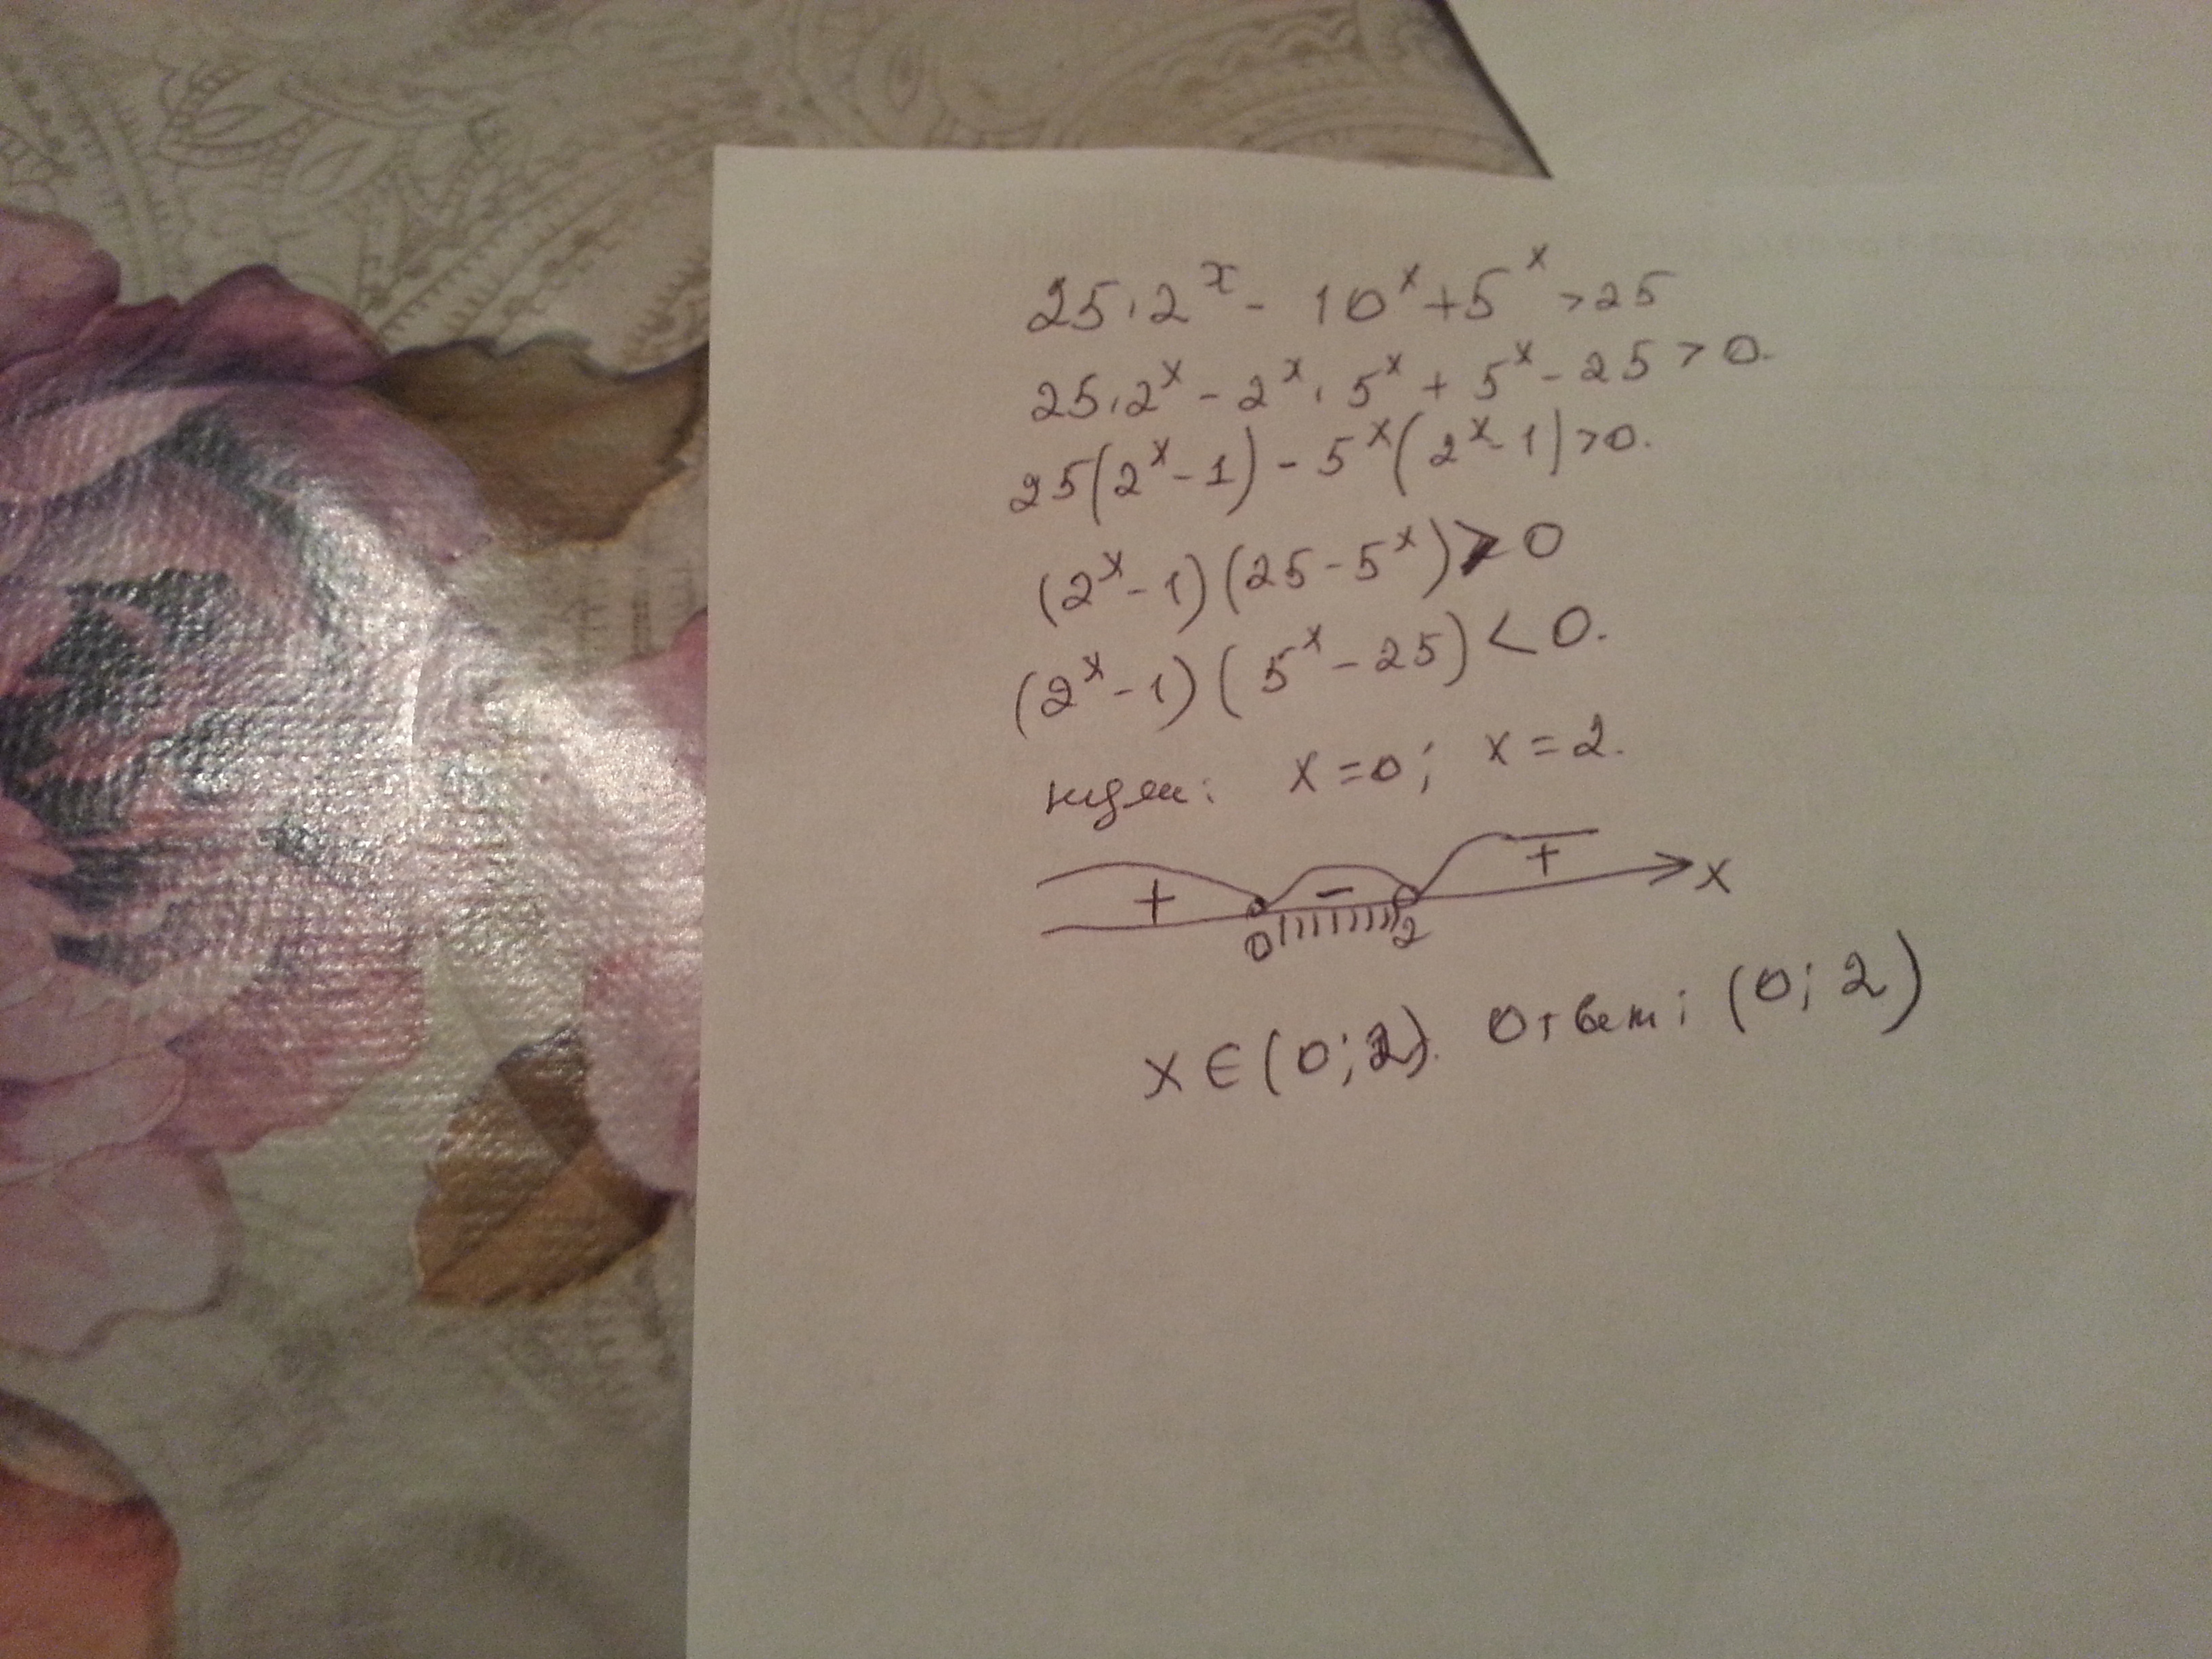 25·2^x - 10^x + 5^x > 25
25·2^x - 2^x · 5^x + 5^x - 25 > 0.
25(2^x - 1) - 5^x(2^x - 1) > 0.
(2^x - 1)(25 - 5^x) > 0
(2^x - 1)(5^x - 25) < 0.
нули: x = 0; x = 2.
+ - + x
0 2
x ∈ (0; 2). Ответ: (0; 2)